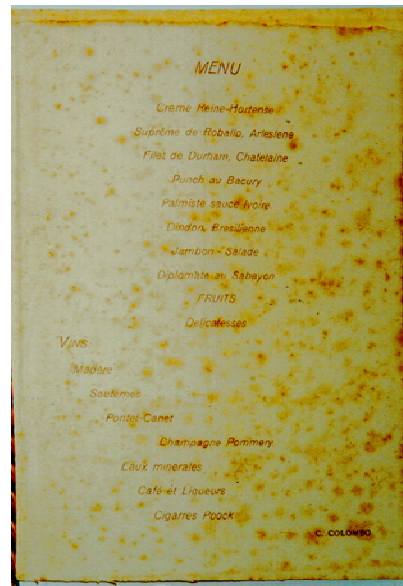 MENU
Crème Reine-Hortense
Suprême de Roballo, Arlesiene
Filet de Durham, Chatelaine
Punch au Bacury
Palmiste sauce Ivoire
Dindon, Bresilienne
Jambon - Salade
Diplomate au Sabayon
FRUITS
Delicatesses
VINS
Madère
Sauternes
Pontet-Canet
Champagne Pommery
Eaux minerales
Café et Liqueurs
Cigarres Poock
C. COLOMBO